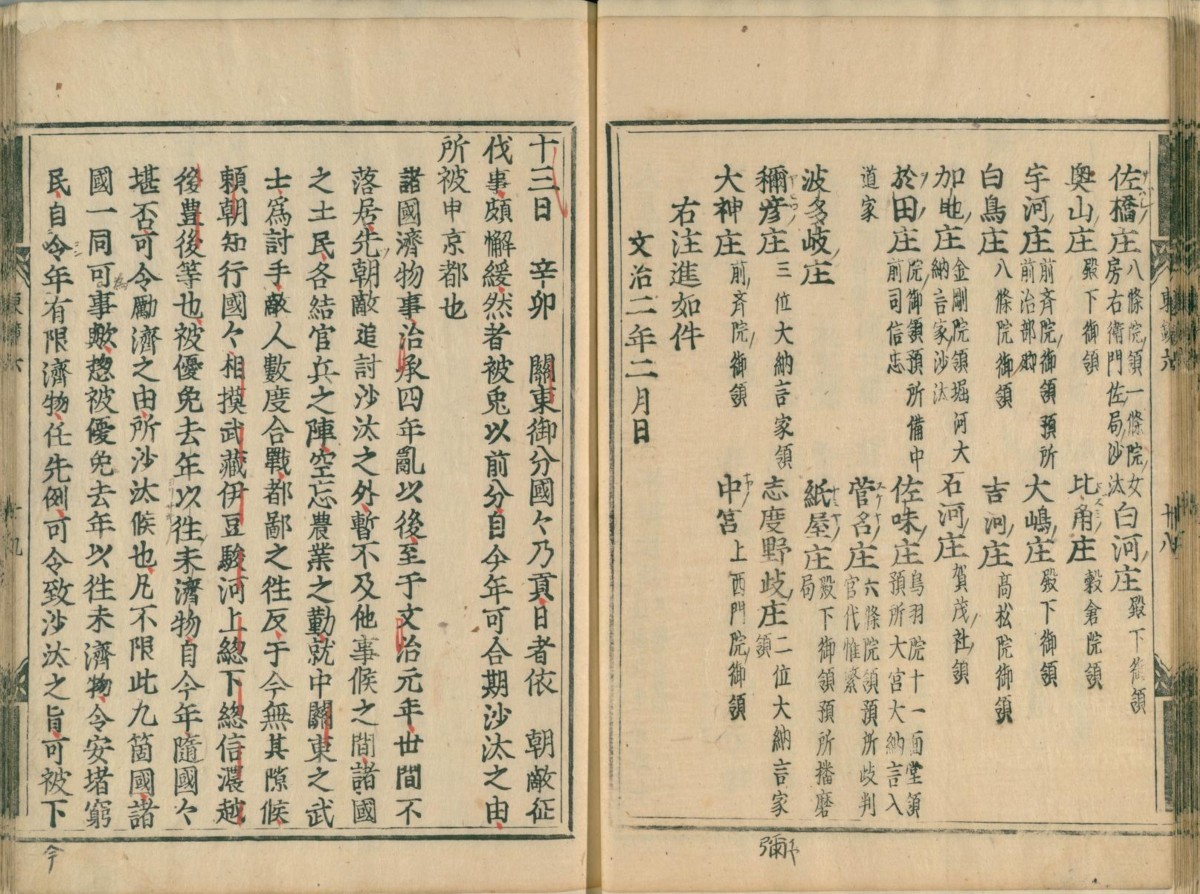 佐橋庄 八條院領一條院女房右衛門佐局沙汰 白河庄 殿下御領
奥山庄 殿下御領 比角庄 穀倉院領
宇河庄 前斉院御領預所前治部卿 大嶋庄 殿下御領
白鳥庄 八條院御領 吉河庄 高松院御領
加地庄 金剛院領堀河大納言家沙汰 石河庄 賀茂社領
於田庄 院御領預所備中前司信忠 佐味庄 鳥羽院十一面堂領預所大宮大納言入
道家 菅名庄 六條院領預所歧判官代惟繁
波多歧庄 紙屋庄 殿下御領預所播磨局
彌彦庄 三位大納言家領 志度野歧庄 二位大納言家領
大神庄 前斉院御領 中宮 上西門院御領
右注進如件
文治二年二月日
十三日 辛卯 關東御分國々乃貢日者依 朝敵征
伐事頗懈緩然者被免以前分自今年可合期沙汰之由
所被申京都也
諸國濟物事治承四年亂以後至于文治元年世間不
落居先朝敵追討沙汰之外暫不及他事候之間諸國
之土民各結官兵之陣空忘農業之勤就中關東之武
士為討手敵人數度合戰都鄙之往反于今無其隙候
頼朝知行國々相摸武藏伊豆駿河上總下總信濃越
後豊後等也被優免去年以往未濟物自今年隨國々
堪否可令勵濟之由所沙汰候也凡不限此九箇國諸
國一同可事歟惣被優免去年以往未濟物令安堵窮
民自令年有限濟物任先例可令致沙汰之旨可被下
東鑑六
廿八
彌
今